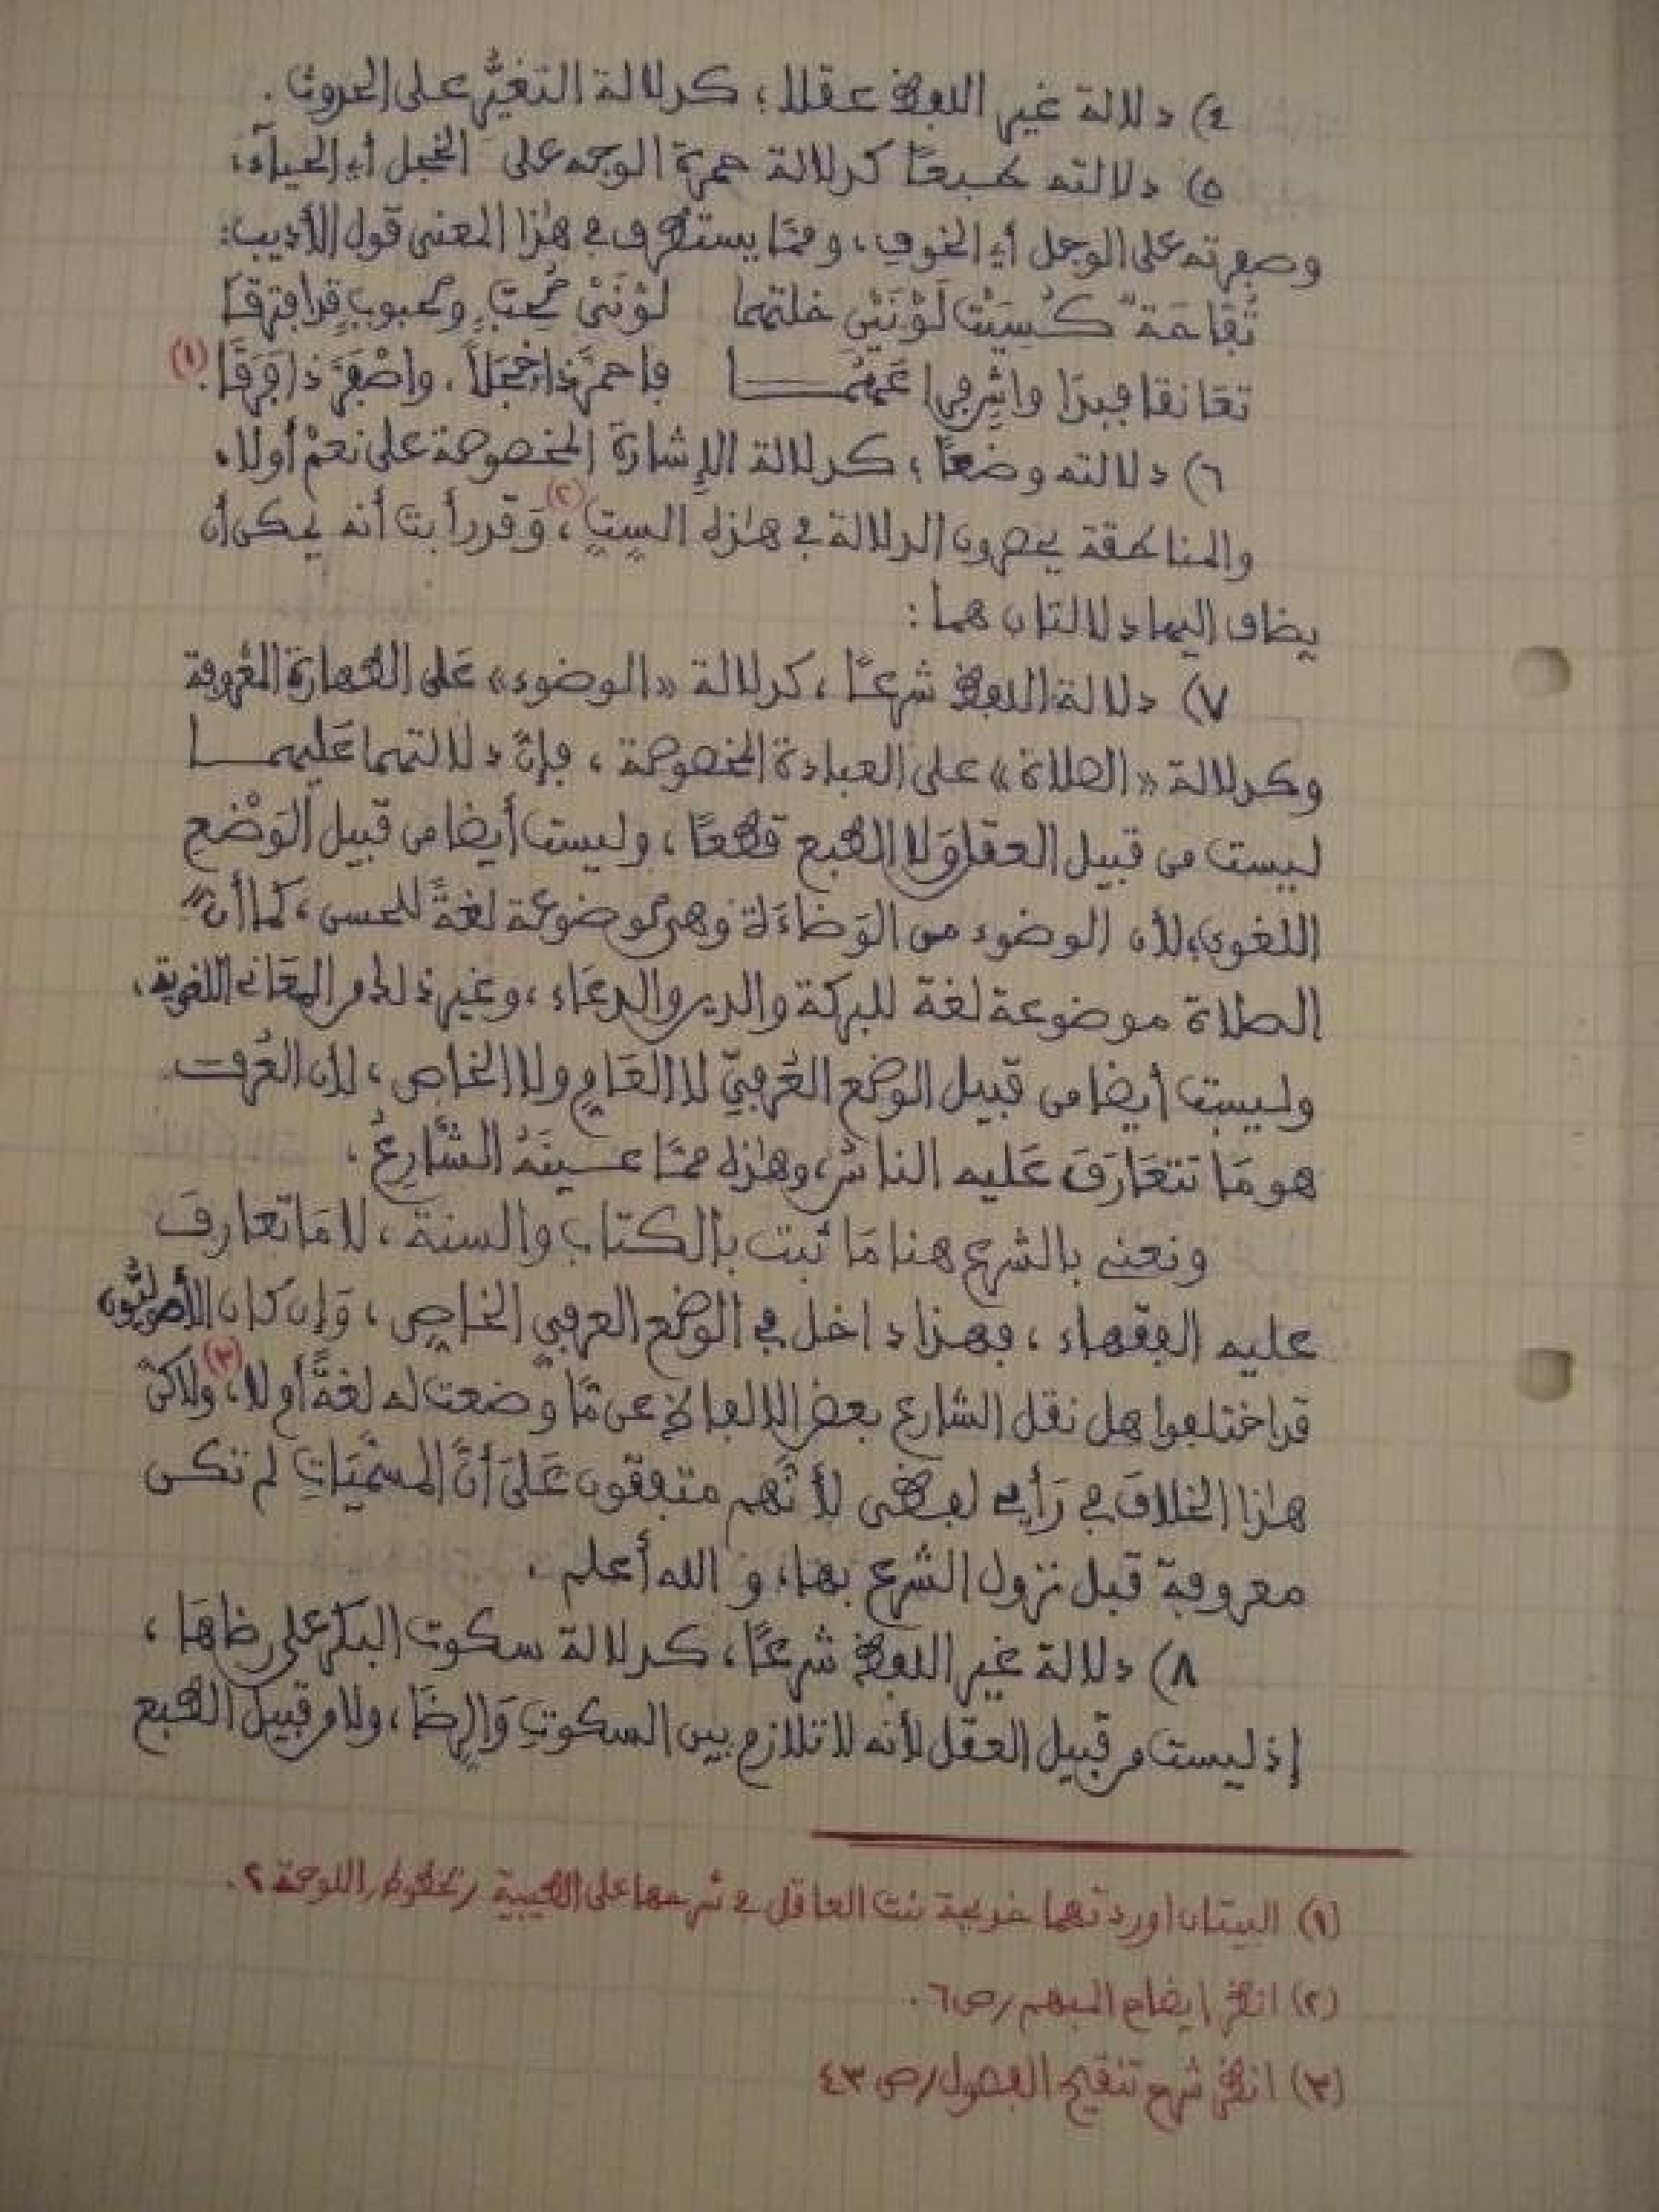 ٤) دلالة غير اللفظ عقلا؛ كدلالة التغيُّر على الحدوث.
٥) دلالته طبعًا كدلالة حمرة الوجه على الخجل أي الحياء،
وصفرته على الوجل أي الخوف، ومما يستظرف في هذا المعنى قول الأديب:
تفاحة كُسِيَتْ لَوْنَيْنِ خلتهما لَوْنَيْ مُحِبٍّ ومحبوبٍ قد افترقا
تعانقا فبدا واشٍ فراعَهُمـــا فاحمرَّ ذا خجلاً، واصْفَرَّ ذا فَرَقًا. (١)
٦) دلالته وضعًا؛ كدلالة الإشارة المخصوصة على نعمْ أولا.
والمناطقة يحصرون الدلالة في هذه الستِ (٢)، وَقد رأيت أنه يمكن أن
يضاف إليها دلالتان هما:
٧) دلالة اللفظ شرعًا، كدلالة «الوضوء» عَلى الطهارة المعْروفة
وكدلالة «الصلاة» على العبادة المخصوصة، فإنَّ دلالتهما عَليهمـــا
ليست من قبيل العقل وَلا الطبع قطعًا، وليست أيضا من قبيل الوَضْع
اللغوي؛ لأن الوضوء من الوَضَاءَة وهي موضوعة لغةً للحسن، كما أنَّ
الصلاة موضوعة لغة للبركة والدين والدعَاء، وغير ذلك من المعَاني اللغوية،
وليست أيضا من قبيل الوضع العُرفيِّ لا العَامِ ولا الخاصِ، لأن العُرف
هو مَا تتعَارَفَ عَليه الناسُ، وهذه ممَّا عـــيَّنَهُ الشَّارِعُ.
ونعني بالشرع هنا مَا ثبت بالكتاب والسنة، لا مَا تعارفَ
عليه الفقهاء، فهذا داخل في الوضع العرفي الخاصِ، وَإن كان الأصوليُّون
قد اختلفوا هل نقل الشارع بعض الألفاظ عن مَّا وضعت له لغةً أو لا، (٣) ولاكنَّ
هذا الخلافَ في رَأيي لفظي لأنَّهم متفقون عَلىَ أنَّ المسمَّيَاتِ لم تكن
معروفة قبل نزول الشرع بها، و الله أعلم.
٨) دلالة غير اللفظ شرعًا، كدلالة سكوت البكر على رضاهَا،
إذ ليست من قبيل العقل لأنه لا تلازم بين السكوتِ وَالرِضَا، ولا من قبيل الطبع
(١) البيتان اوردتهما خديجة بنت العاقل في شرحها على الطيبية / مخطوط / اللوحة ٢.
(٢) انظر إيضاح المبهم / ص ٦.
(٣) انظر شرح تنقيح الفصول / ص ٤٣